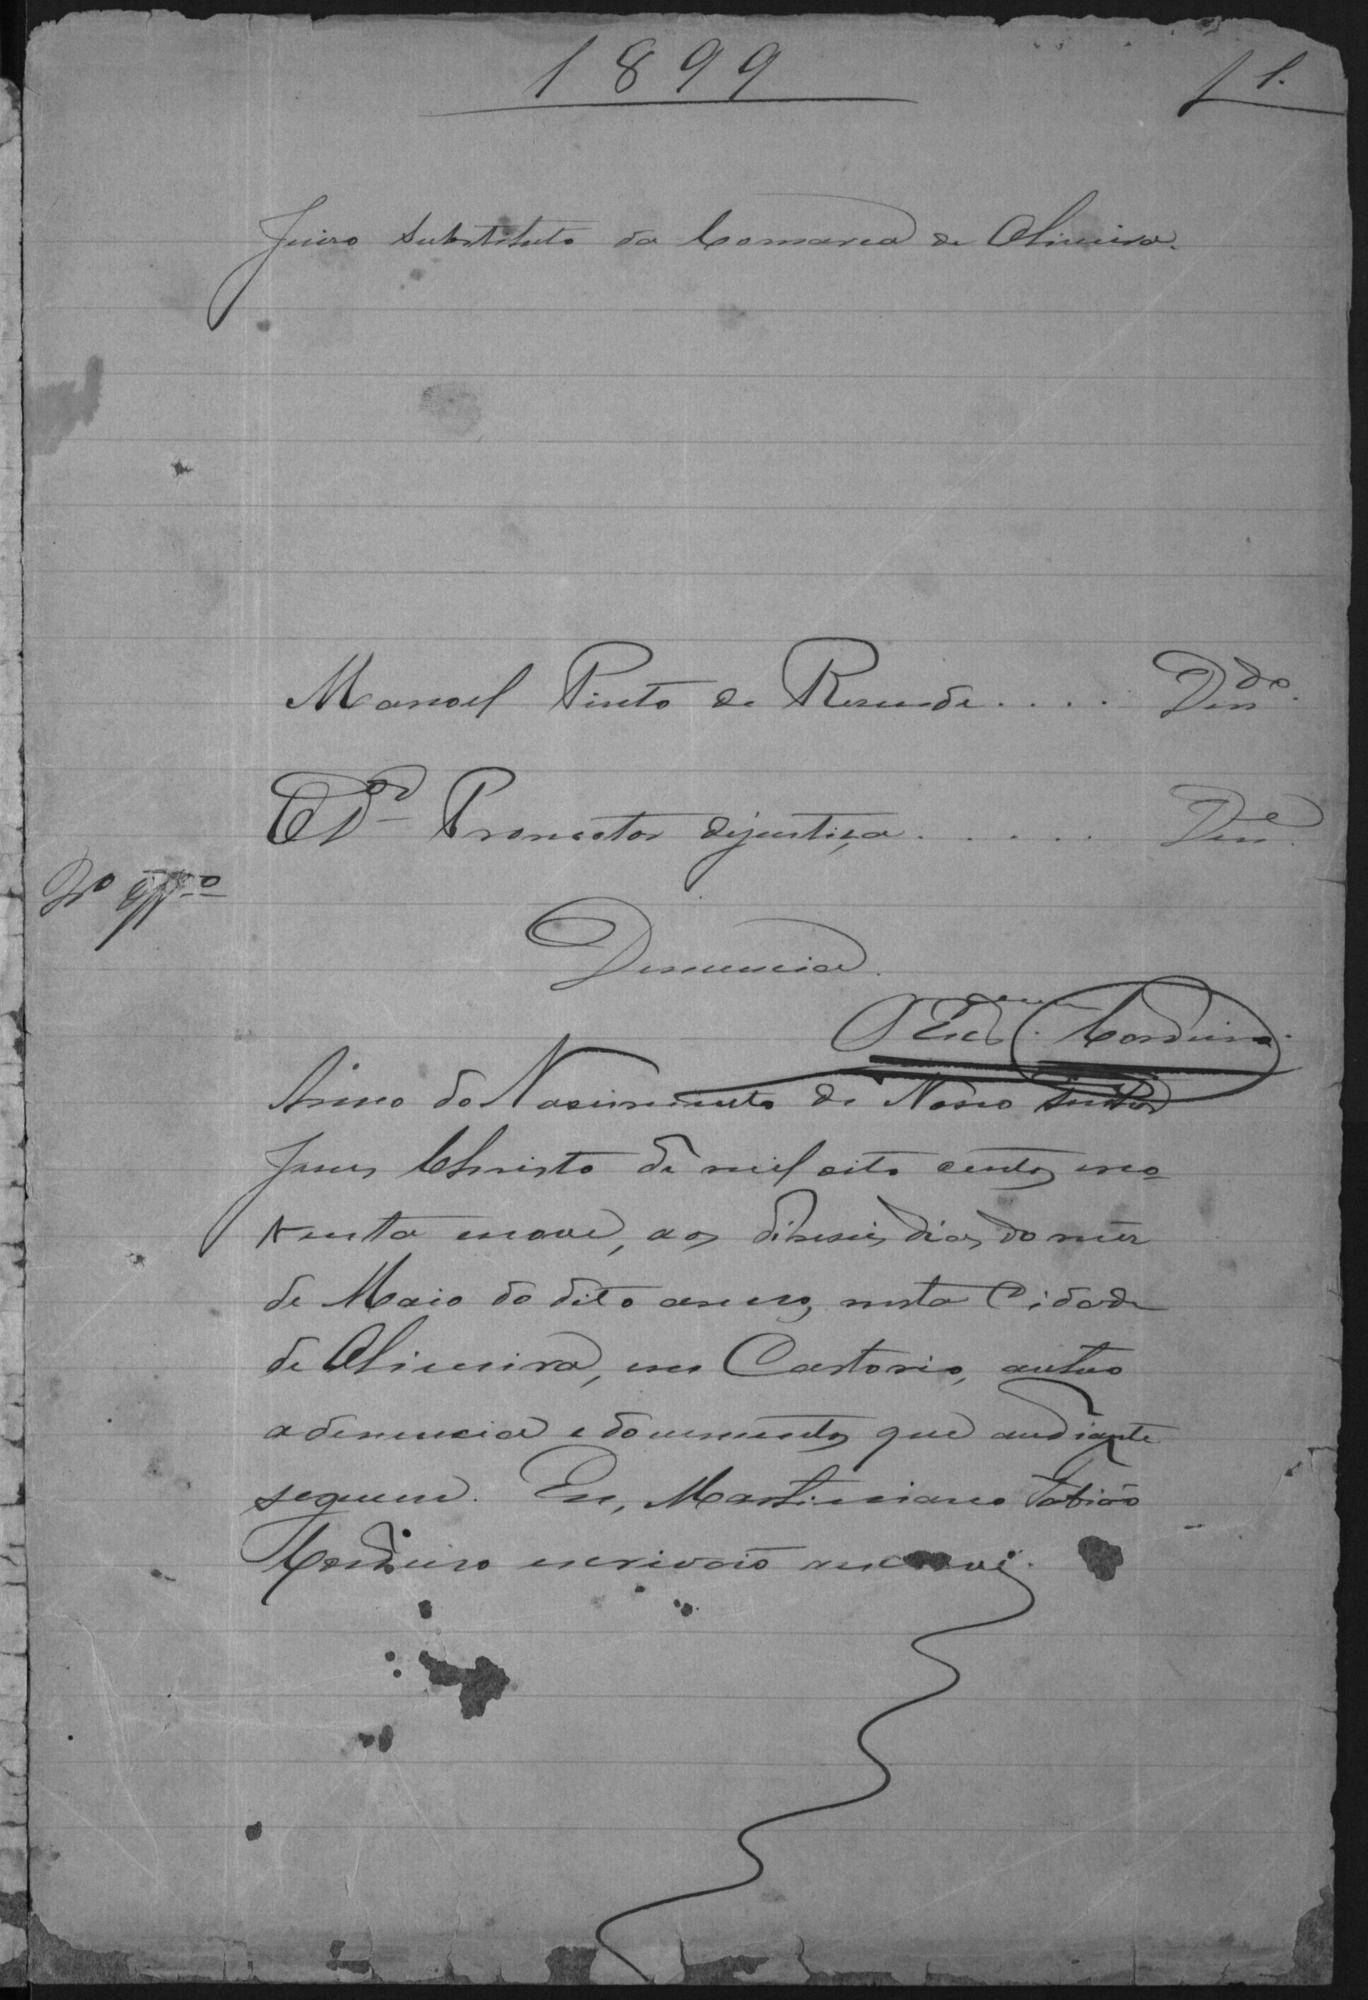 1899
fl.
Juizo Substituto da Comarca de Oliveira.
Manoel Pinto de Resende.... Dendo.
O Dr. Promotor dejustiça...... Dene.
Denuncia.
O Escr. Cordeiro.
Anno do Nascimento de Nosso Senhor
Jesus Christo de mil oito centos eno-
venta enove, aos dezeseis dias do mez
de Maio do dito anno, nesta Cidade
de Oliveira, em Cartorio, autuo
adenuncia e documentos que audiante
seguem. Eu, Martiniano Fabião
Cordeiro escrivão